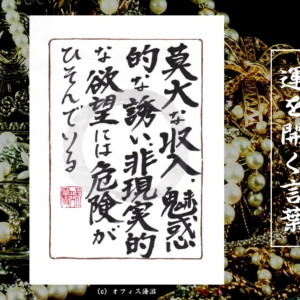 莫大な収入・魅惑
的な誘い・非現実的
な欲望には危険が
ひそんでいる
運を開く言葉